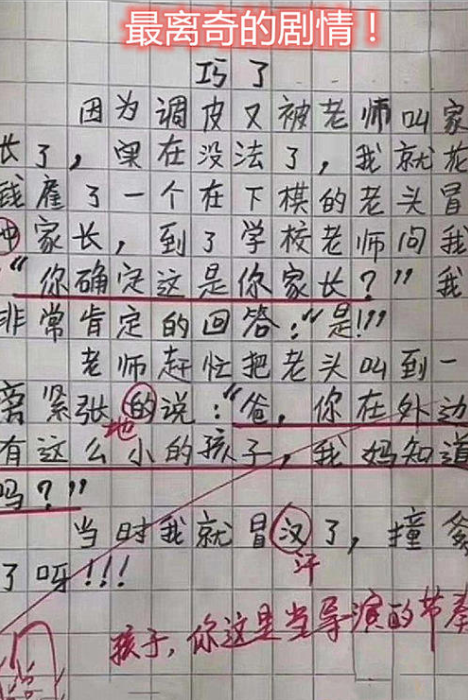 最离奇的剧情！
巧了
因为调皮又被老师叫家
长了，实在没法了，我就花
钱雇了一个在下棋的老头冒
冲家长，到了学校老师问我
“你确定这是你家长？”我
非常肯定的回答：“是!!”
老师赶忙把老头叫到一
旁紧张的说：“爸，你在外边
地
有这么小的孩子，我妈知道
吗？”
当时我就冒汉了，撞爹
汗
了呀!!!
孩子，你这是当导演的节奏